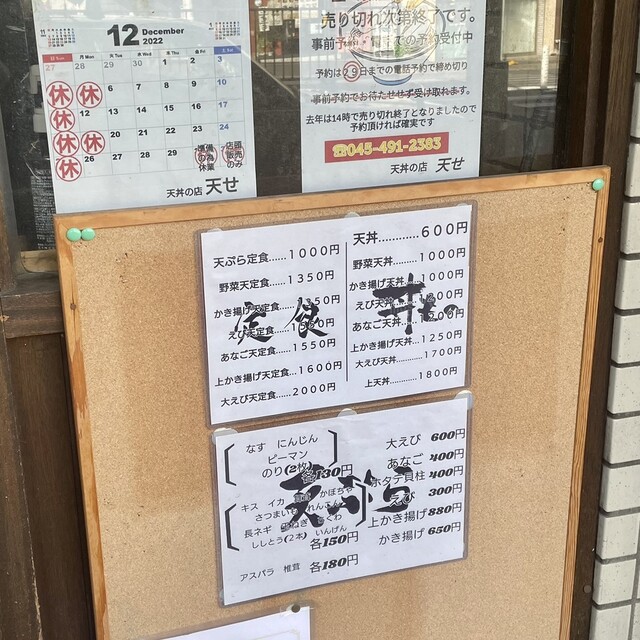 12 December 2022
日 Sun 月 Mon 火 Tue 水 Wed 木 Thu 金 Fri 土 Sat
27 28 29 30 1 2 3
休 休 6 7 8 9 10
休 12 13 14 15 16 17
休 休 20 21 22 23 24
休 26 27 28 29
準備の為休業
店頭販売のみ
天丼の店 天せ
売り切れ次第終了です。
事前予約
での予約受付中
予約は29日までの電話予約で締め切り
事前予約でお待たせせず受け取れます。
去年は14時で売り切れ終了となりましたので
予約頂ければ確実です
☎045-491-2383
天丼の店 天せ
定食
天ぷら定食......1000円
野菜天定食......1350円
かき揚げ天定食...1350円
えび天定食
あなご天定食......1550円
上かき揚げ天定食...1600円
大えび天定食......2000円
丼もの
天丼............600円
野菜天丼.........1000円
かき揚げ天丼...1000円
えび天丼
あなご天丼
上かき揚げ天丼...1250円
大えび天丼.........1700円
上天丼............1800円
天ぷら
なす にんじん
ピーマン
のり(2枚) 各130円
キス イカ かぼちゃ
さつまいも れんこん
長ネギ 玉ねぎ ちくわ
ししとう(2本) いんげん
各150円
アスパラ 椎茸 各180円
大えび 600円
あなご 400円
ホタテ貝柱 400円
えび 300円
上かき揚げ 880円
かき揚げ 650円